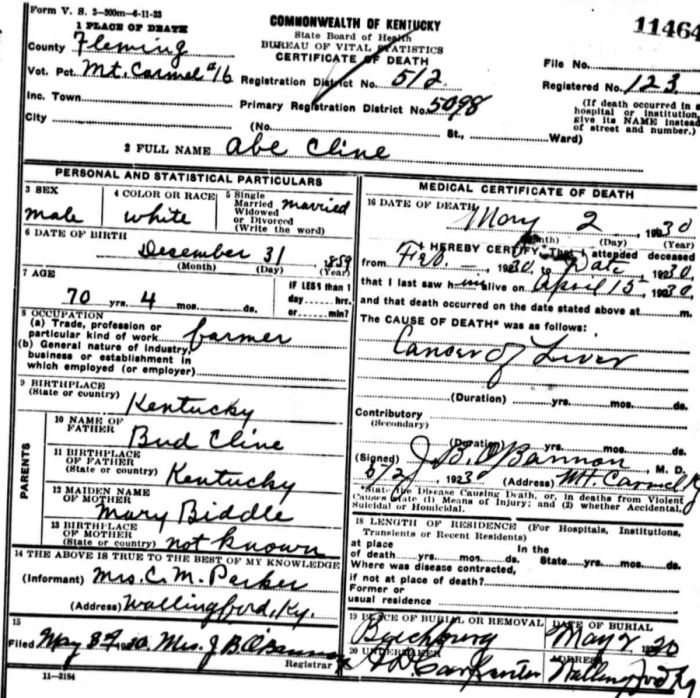 Form V. S. 3-200m-6-11-23
1 PLACE OF DEATH
COMMONWEALTH OF KENTUCKY
State Board of Health
BUREAU OF VITAL STATISTICS
CERTIFICATE OF DEATH
11464
County Fleming
File No.
Vot. Pct. Mt. Carmel #16
Registration District No. 512
Registered No. 123
Inc. Town
Primary Registration District No. 5098
(If death occurred in a hospital or institution, give its NAME instead of street and number.)
City (No. St., Ward)
2 FULL NAME Abe Cline
PERSONAL AND STATISTICAL PARTICULARS
3 SEX
male
4 COLOR OR RACE
white
5 Single
Married
Widowed
or Divorced
(Write the word)
married
6 DATE OF BIRTH
December 31, 1859
(Month) (Day) (Year)
7 AGE
70 yrs. 4 mos. ds.
IF LESS than 1
day hrs.
or min?
8 OCCUPATION
(a) Trade, profession or
particular kind of work farmer
(b) General nature of industry,
business or establishment in
which employed (or employer)
9 BIRTHPLACE
(State or country) Kentucky
PARENTS
10 NAME OF
FATHER Bud Cline
11 BIRTHPLACE
OF FATHER
(State or country) Kentucky
12 MAIDEN NAME
OF MOTHER Mary Biddle
13 BIRTHPLACE
OF MOTHER
(State or country) not known
14 THE ABOVE IS TRUE TO THE BEST OF MY KNOWLEDGE
(Informant) Mrs. C. M. Parker
(Address) Wallingford, Ky.
15
Filed May 8, 1930. Mrs. J B O'Bannon
Registrar
11-3184
MEDICAL CERTIFICATE OF DEATH
16 DATE OF DEATH
May 2, 1930
(Month) (Day) (Year)
I HEREBY CERTIFY, That I attended deceased
from Feb. 1930, to Date, 1930
that I last saw him alive on April 15, 1930
and that death occurred on the date stated above at m.
The CAUSE OF DEATH* was as follows:
Cancer of Liver
(Duration) yrs. mos. ds.
Contributory
(Secondary)
(Duration) yrs. mos. ds.
(Signed) J B. O'Bannon, M. D.
5/2, 1930 (Address) Mt. Carmel Ky
*State the Disease Causing Death, or, in deaths from Violent
Causes state (1) Means of Injury; and (2) whether Accidental,
Suicidal or Homicidal.
18 LENGTH OF RESIDENCE (For Hospitals, Institutions,
Transients or Recent Residents)
at place In the
of death yrs. mos. ds. State yrs. mos. ds.
Where was disease contracted,
if not at place of death?
Former or
usual residence
19 PLACE OF BURIAL OR REMOVAL
Beechburg
DATE OF BURIAL
May 2 1930
20 UNDERTAKER
Carpenter
ADDRESS
Wallingford Ky